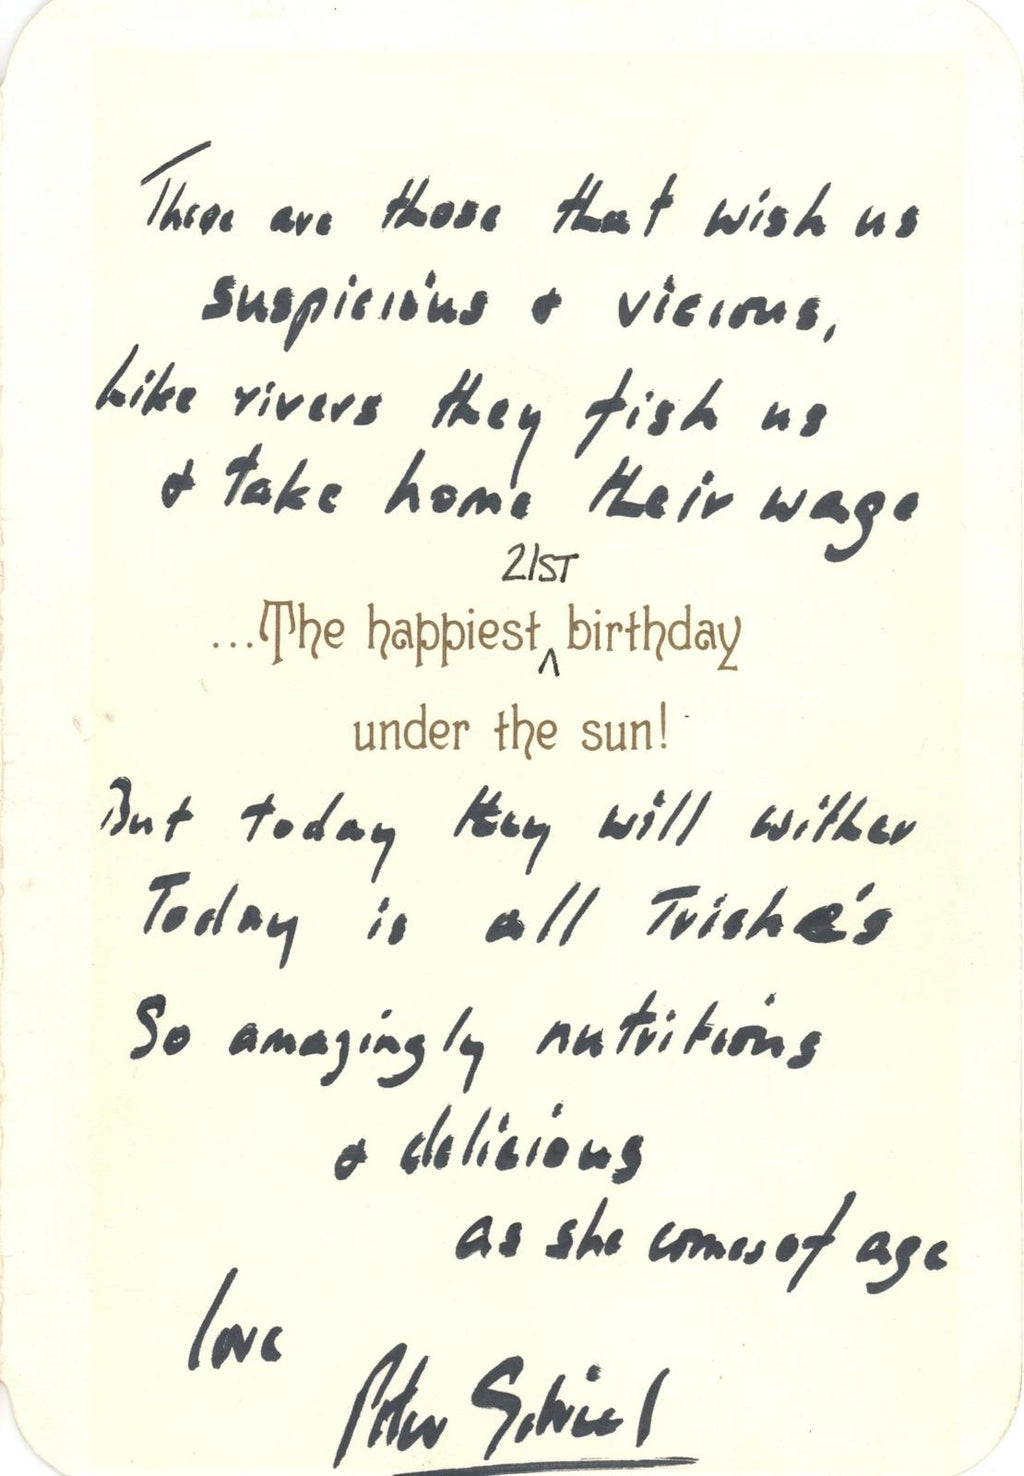 There are those that wish us
suspicious & vicious,
Like rivers they fish us
& take home their wage
21ST
...The happiest ^ birthday
under the sun!
But today they will wither
Today is all Trishe's
So amazingly nutritious
& delicious
as she comes of age
love
Peter Gabriel